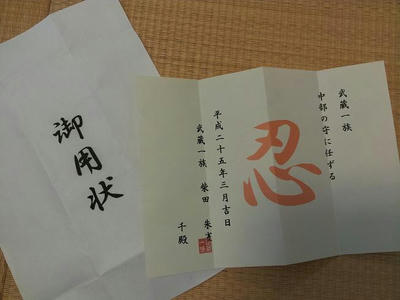 御用状
武蔵一族
中部の守に任ずる
忍
平成二十五年三月吉日
武蔵一族 柴田
千殿